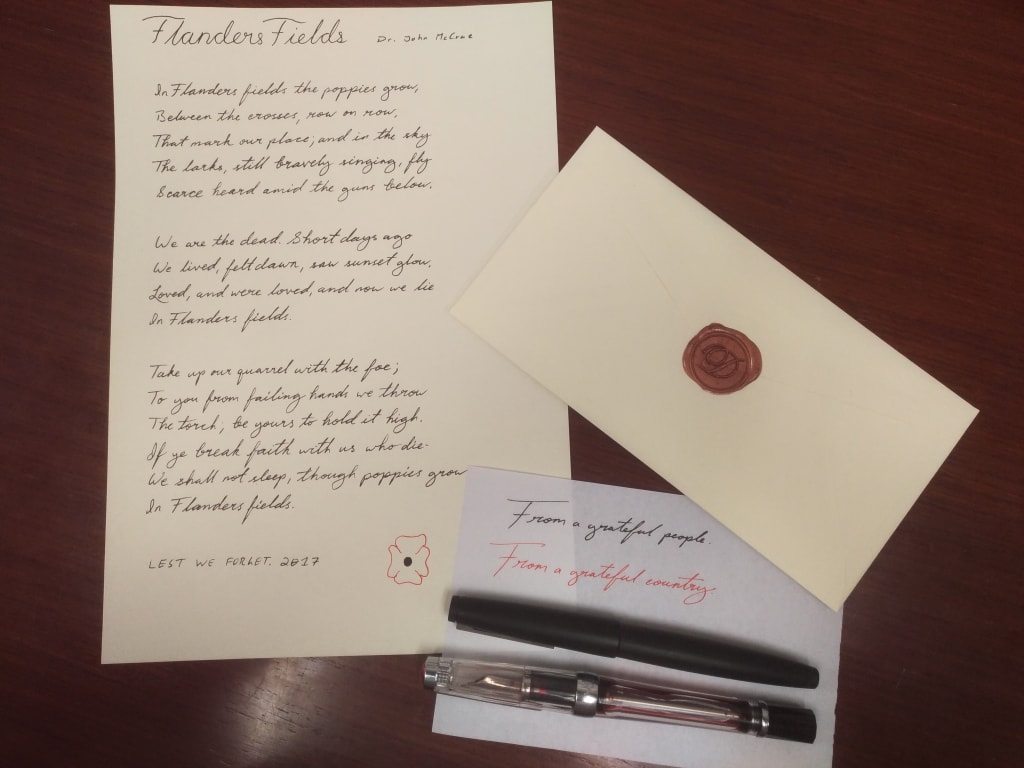 Flanders Fields Dr. John McCrae
In Flanders fields the poppies grow,
Between the crosses, row on row,
That mark our place; and in the sky
The larks, still bravely singing, fly
Scarce heard amid the guns below.
We are the dead. Short days ago
We lived, felt dawn, saw sunset glow,
Loved, and were loved, and now we lie
In Flanders fields.
Take up our quarrel with the foe;
To you from failing hands we throw
The torch; be yours to hold it high.
If ye break faith with us who die-
We shall not sleep, though poppies grow
In Flanders fields.
LEST WE FORGET. 2017
From a grateful people.
From a grateful country.